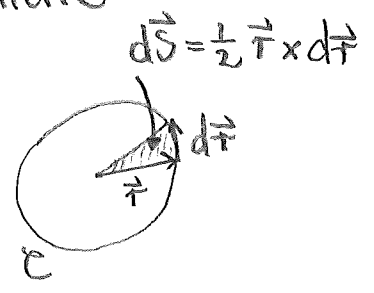 dS⃗ = ½ r⃗ × dr⃗
dr⃗
r⃗
C